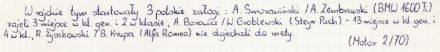 W rajdzie tym startowały 3 polskie załogi : A. Smorawiński /A. Zembrzuski (BMW 1600 Ti)
zajęli 3 miejsce w kl. gen. i 2 w klasie, A. Borowicz /W. Groblewski (Steyr Puch) - 13 miejsce w kl. gen. i
4 w kl., R. Żyszkowski / B. Krupa (Alfa Romeo) nie dojechali do mety.
(Motor 2/70)